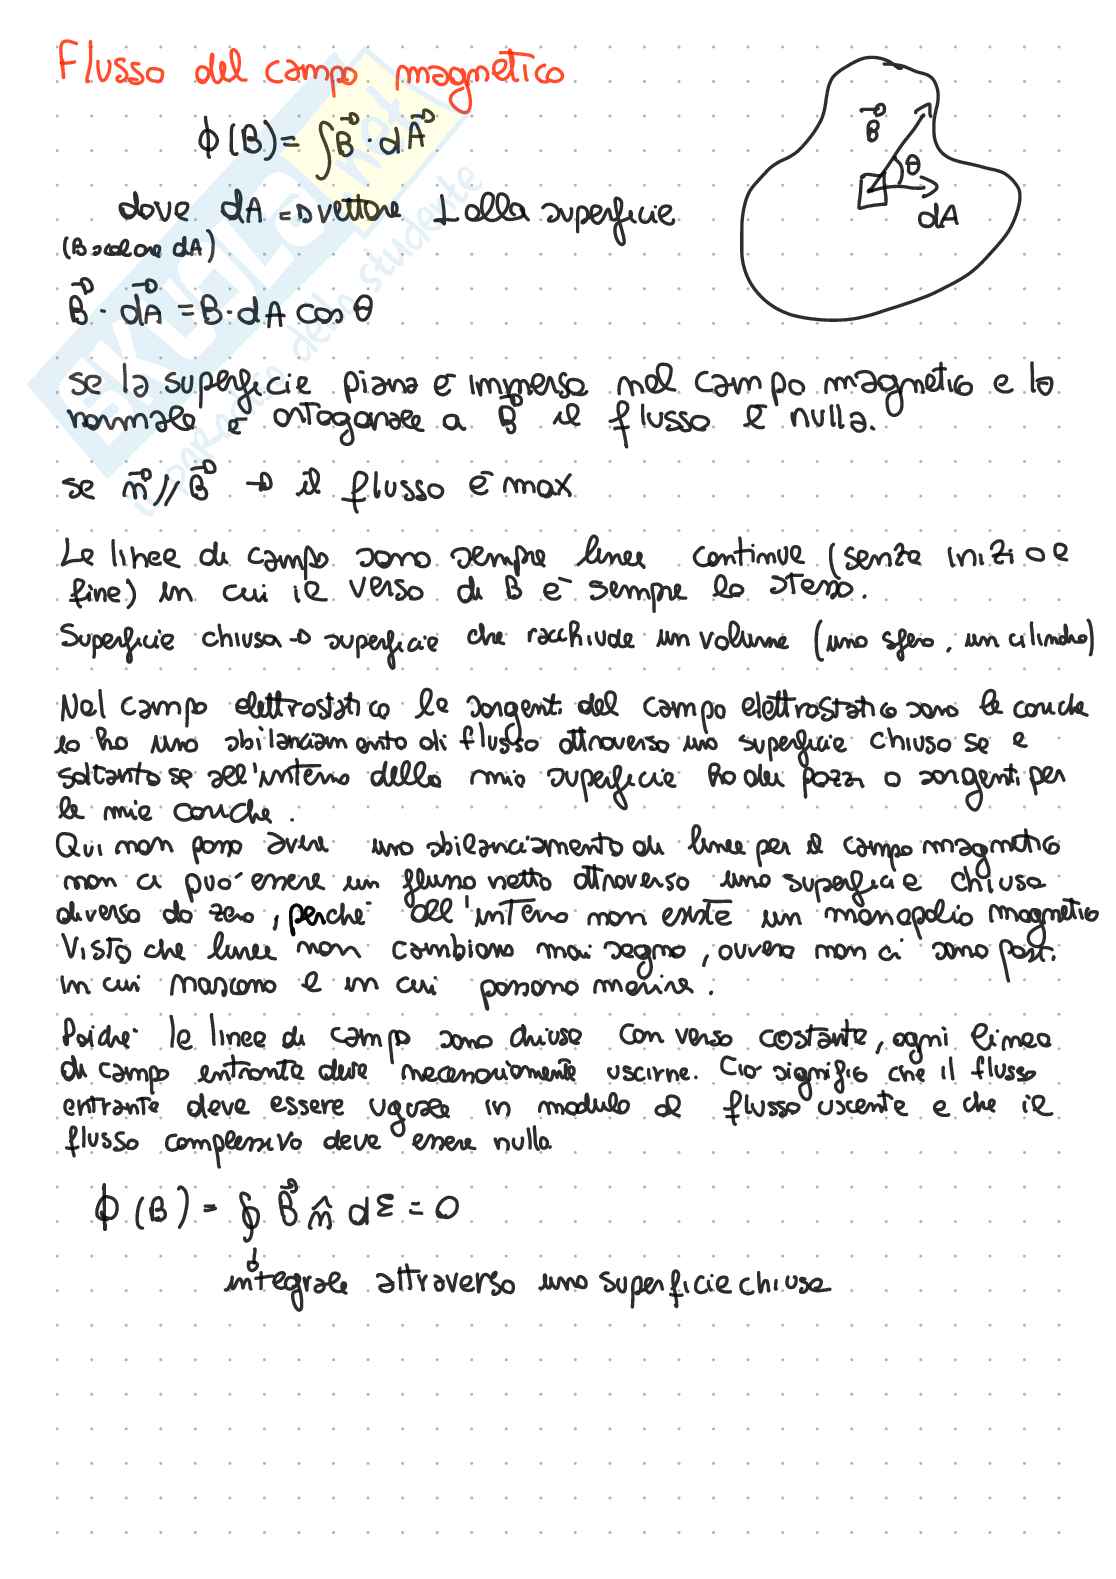 Flusso del campo magnetico
ϕ(B) = ∫B⃗ · dA⃗
dove dA => vettore ⊥ alla superficie
(B scalare dA)
B⃗ · dA⃗ = B · dA cos θ
B⃗
θ
dA
se la superficie piana è immersa nel campo magnetico e la
normale è ortogonale a B⃗ il flusso è nulla.
se n⃗ // B⃗ → il flusso è max
Le linee di campo sono sempre linee continue (senza inizio e
fine) in cui il verso di B è sempre lo stesso.
Superficie chiusa → superficie che racchiude un volume (una sfera, un cilindro)
Nel campo elettrostatico le sorgenti del campo elettrostatico sono le cariche
Io ho uno sbilanciamento di flusso attraverso una superficie chiusa se e
soltanto se all'interno della mia superficie ho dei pozzi o sorgenti per
le mie cariche.
Qui non posso avere uno sbilanciamento di linee per il campo magnetico
non ci può essere un flusso netto attraverso una superficie chiusa
diverso da zero, perché all'interno non esiste un monopolio magnetico
Visto che linee non cambiano mai segno, ovvero non ci sono posti
in cui nascono e in cui possono morire.
Poiché le linee di campo sono chiuse con verso costante, ogni linea
di campo entrante deve necessariamente uscirne. Ciò significa che il flusso
entrante deve essere uguale in modulo al flusso uscente e che il
flusso complessivo deve essere nulla
ϕ (B) = ∮ B⃗ n̂ dΣ = 0
integrale attraverso una superficie chiusa
SKUOLA.net
il paradiso dello studente